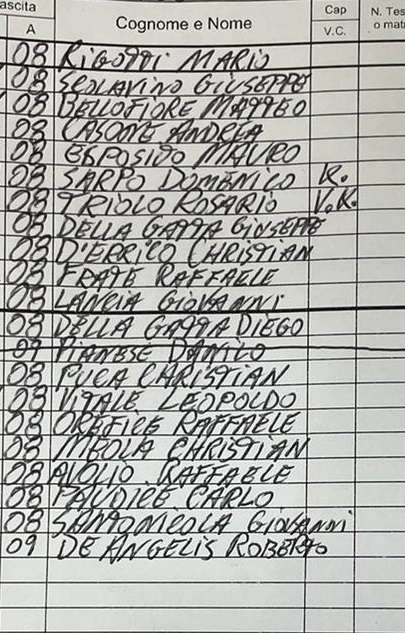 ascita Cognome e Nome Cap N. Tes
A V.C. o mat
08 RIGOTTI MARIO
08 SCOLAVINO GIUSEPPE
08 BELLOFIORE MATTEO
08 CASONE ANDREA
08 ESPOSITO MAURO
08 SARPO DOMENICO K.
08 TRIOLO ROSARIO V.K.
08 DELLA GATTA GIUSEPPE
08 D'ERRICO CHRISTIAN
08 FRATE RAFFAELE
08 LANCIA GIOVANNI
08 DELLA GATTA DIEGO
09 PIANESE DANILO
08 PUCA CHRISTIAN
08 VITALE LEOPOLDO
08 OREFICE RAFFAELE
08 MEOLA CHRISTIAN
08 RAFFAELE
08 CARLO
08 SANTONICOLA GIOVANNI
09 DE ANGELIS ROBERTO